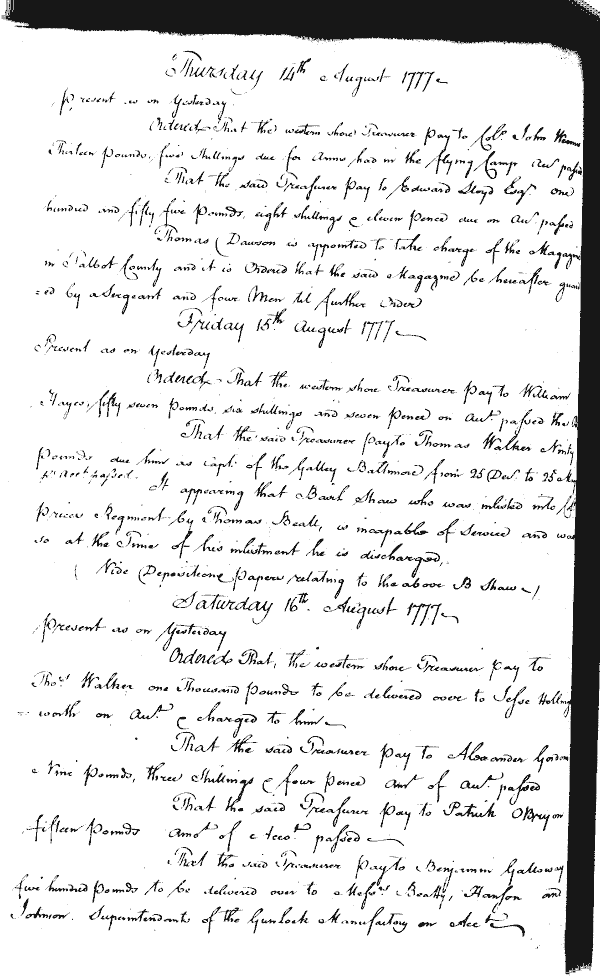 Thursday 14th August 1777
Present as on Yesterday
Ordered That the western shore Treasurer pay to Colo John
Thirteen Pounds, five shillings due for Arms had in the flying Camp Acct passed
That the said Treasurer Pay to Edward Lloyd Esqr one
hundred and fifty five Pounds, eight shillings & eleven Pence due on Acct passed
Thomas Dawson is appointed to take charge of the Magazine
in Talbot County and it is Ordered that the said Magazine be hereafter guard
=ed by a Sergeant and four Men til further Order
Friday 15th August 1777
Present as on Yesterday
Ordered That the western shore Treasurer pay to William
Hayes, fifty seven Pounds, six shillings and seven Pence on Acct passed
That the said Treasurer pay to Thomas Walker Ninty
Pounds due him as Capt. of the Galley Baltimore from 25 Decr to 25
pr Acct passed. It appearing that Basil Shaw who was inlisted into
Prices Regiment by Thomas Beall, is incapable of Service and was
so at the Time of his inlistment he is discharged,
(Vide Depositions Papers relating to the above B Shaw)
Saturday 16th August 1777
Present as on Yesterday
Ordered That, the western shore Treasurer pay to
Thos Walker one Thousand Pounds to be delivered over to Jesse Hollings
=worth on Acct & charged to him
That the said Treasurer pay to Alexander Gordon
Nine Pounds, three Shillings & four pence Amt of Acct passed
That the said Treasurer pay to Patrick OBryon
fifteen Pounds Amot of Accot passed
That the said Treasurer pay to Benjamin Galloway
five hundred Pounds to be delivered over to Messrs Beatty, Hanson and
Johnson. Superintendants of the Gunlock Manufactory on Acct